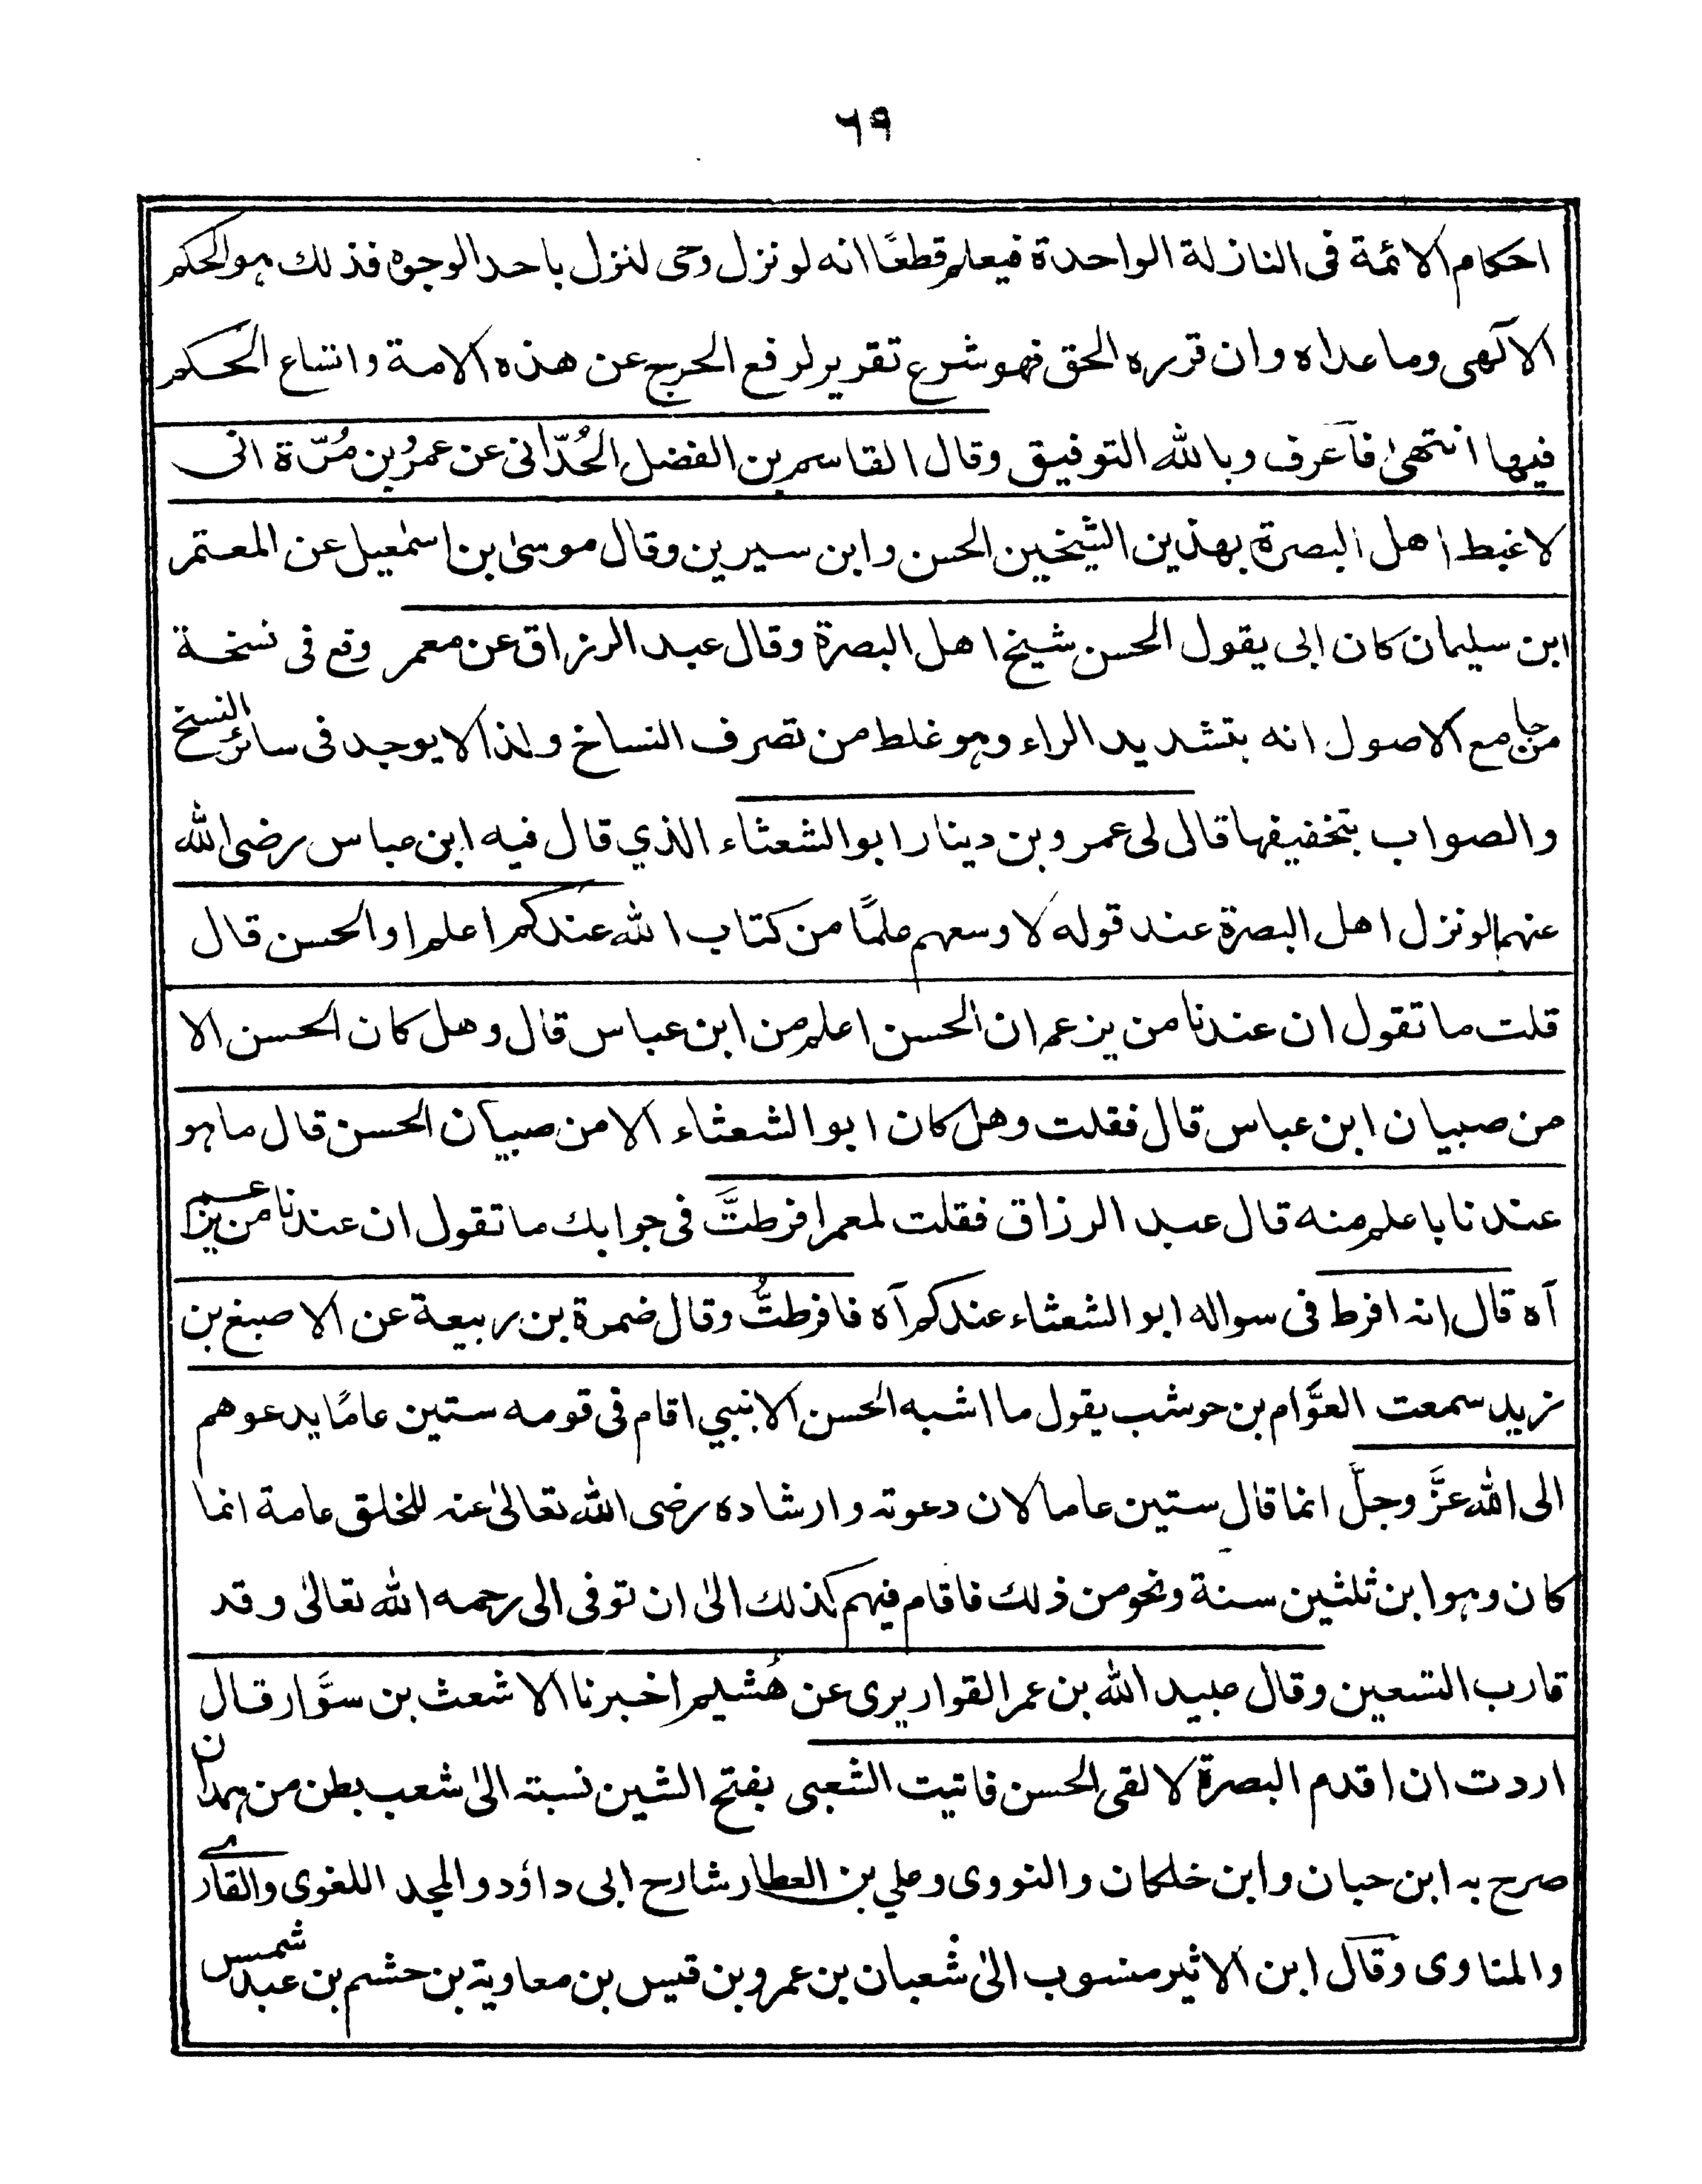 ٦٩
احكام الائمة فى النازلة الواحدة فيعلم قطعًا انه لو نزل وحى لنزل باحد الوجوه فذلك هو الحكم
الآلهى وما عداه وان قرره الحق فهو شرع تقرير لرفع الحرج عن هذه الامة واتساع الحكم
فيها انتهىٰ فآعرف وبالله التوفيق وقال القاسم بن الفضل الحُدّانى عن عمرُو بن مُرّة انى
لاغبط اهل البصرة بهذين الشيخين الحسن وابن سيرين وقال موسىٰ بن اسمٰعيل عن المعتمر
ابن سليمان كان ابى يقول الحسن شيخ اهل البصرة وقال عبد الرزاق عن معمر وقع فى نسخة
من جامع الاصول انه بتشديد الراء وهو غلط من تصرف النساخ ولذا لا يوجد فى سائر النسخ
والصواب بتخفيفها قال لى عمرو بن دينار ابو الشعثاء الذي قال فيه ابن عباس رضى الله
عنهما لو نزل اهل البصرة عند قوله لاوسعهم علمًا من كتاب الله عندكم اعلم او الحسن قال
قلت ما تقول ان عندنا من يزعم ان الحسن اعلم من ابن عباس قال وهل كان الحسن الا
من صبيان ابن عباس قال فقلت وهل كان ابو الشعثاء الا من صبيان الحسن قال ما هو
عندنا باعلم منه قال عبد الرزاق فقلت لمعمر افرطتَّ فى جوابك ما تقول ان عندنا من يزعم
آه قال انه افرط فى سواله ابو الشعثاء عندكم آه فافرطتُّ وقال ضمرة بن ربيعة عن الاصبغ بن
زيد سمعت العوَّام بن حوشب يقول ما اشبه الحسن الا بنبي اقام فى قومه ستين عامًا يدعوهم
الى الله عزَّ وجلَّ انما قال ستين عاما لان دعوته وارشاده رضى الله تعالىٰ عنه للخلق عامة انما
كان وهو ابن ثلثين سنة ونحو من ذلك فاقام فيهم كذلك الىٰ ان توفى الى رحمه الله تعالىٰ وقد
قارب التسعين وقال عبيد الله بن عمر القواريرى عن هُشيم اخبرنا الاشعث بن سوَّار قال
اردت ان اقدم البصرة لالقى الحسن فاتيت الشعبى بفتح الشين نسبته الىٰ شعب بطن من همدان
صرح به ابن حبان وابن خلكان والنووى وعلي بن العطار شارح ابى داؤد والمجد اللغوى والقارے
والمناوى وقال ابن الاثير منسوب الىٰ شعبان بن عمرو بن قيس بن معاوية بن حشم بن عبد شمس